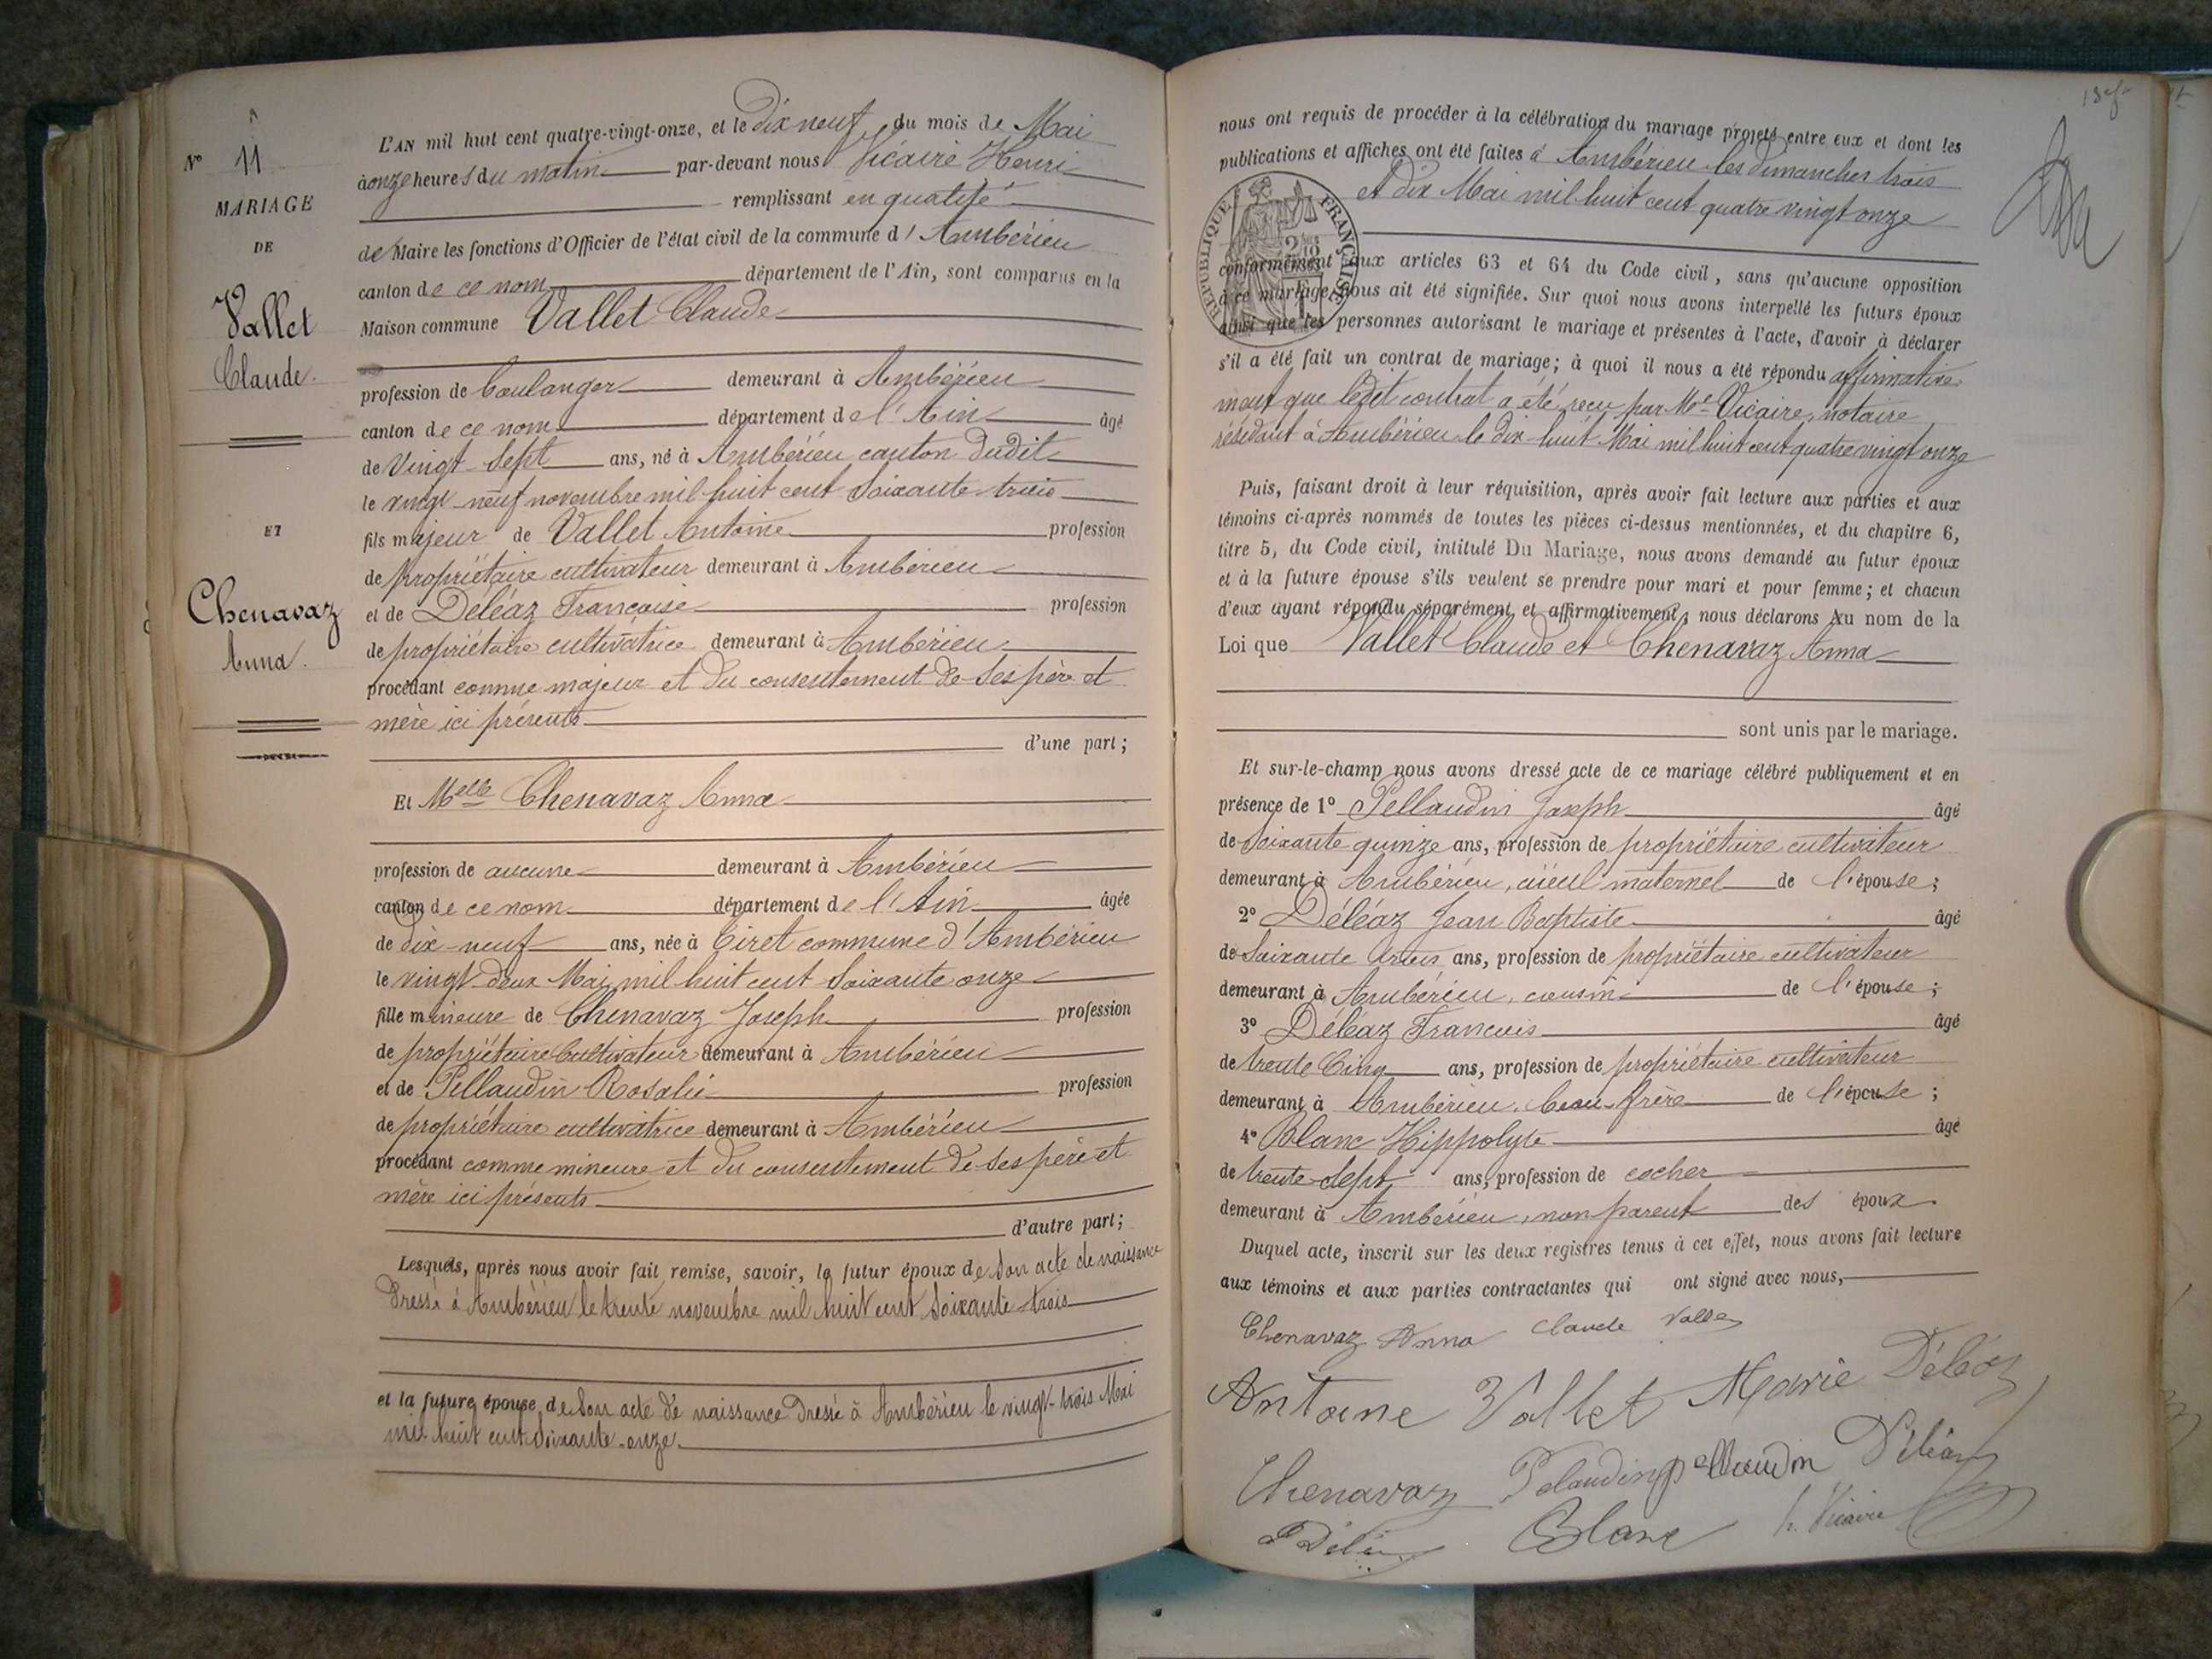 N° 11
MARIAGE
DE
Vallet
Claude.
ET
Chenavaz
Anna.
L'AN mil huit cent quatre-vingt-onze, et le Dix neuf du mois de Mai
à onze heures du matin par-devant nous Vicaire Henri
remplissant en qualité
de Maire les fonctions d'Officier de l'état civil de la commune d'Ambérieu
canton de ce nom département de l'Ain, sont comparus en la
Maison commune Vallet Claude
profession de boulanger demeurant à Ambérieu
canton de ce nom département de l'Ain âgé
de Vingt-Sept ans, né à Ambérieu canton dudit
le vingt-neuf novembre mil huit cent soixante-trois
fils majeur de Vallet Antoine profession
de propriétaire cultivateur demeurant à Ambérieu
et de Déléaz Françoise profession
de propriétaire cultivatrice demeurant à Ambérieu
procédant comme majeur et du consentement de ses père et
mère ici présents
d'une part;
Et Melle Chenavaz Anna
profession de aucune demeurant à Ambérieu
canton de ce nom département de l'Ain âgée
de Dix-neuf ans, née à Tiret commune d'Ambérieu
le vingt-deux Mai mil huit cent soixante onze
fille mineure de Chenavaz Joseph profession
de propriétaire Cultivateur demeurant à Ambérieu
et de Pellaudin Rosalie profession
de propriétaire cultivatrice demeurant à Ambérieu
procédant comme mineure et du consentement de ses père et
mère ici présents
d'autre part;
Lesquels, après nous avoir fait remise, savoir, le futur époux de son acte de naissance
Dressé à Ambérieu le trente novembre mil huit cent soixante-trois
et la future épouse, de son acte de naissance Dressé à Ambérieu le vingt-trois Mai
mil huit cent soixante-onze.
nous ont requis de procéder à la célébration du mariage projeté entre eux et dont les
publications et affiches ont été faites à Ambérieu les dimanches trois
et dix Mai mil huit cent quatre vingt onze
RÉPUBLIQUE FRANÇAISE
conformément aux articles 63 et 64 du Code civil, sans qu'aucune opposition
à ce mariage nous ait été signifiée. Sur quoi nous avons interpellé les futurs époux
ainsi que les personnes autorisant le mariage et présentes à l'acte, d'avoir à déclarer
s'il a été fait un contrat de mariage; à quoi il nous a été répondu affirmative
ment que ledit contrat a été reçu par Me Vicaire, notaire
résidant à Ambérieu le dix-huit Mai mil huit cent quatre vingt onze
Puis, faisant droit à leur réquisition, après avoir fait lecture aux parties et aux
témoins ci-après nommés de toutes les pièces ci-dessus mentionnées, et du chapitre 6,
titre 5, du Code civil, intitulé Du Mariage, nous avons demandé au futur époux
et à la future épouse s'ils veulent se prendre pour mari et pour femme; et chacun
d'eux ayant répondu séparément et affirmativement, nous déclarons au nom de la
Loi que Vallet Claude et Chenavaz Anna
sont unis par le mariage.
Et sur-le-champ nous avons dressé acte de ce mariage célébré publiquement et en
présence de 1° Pellaudin Joseph âgé
de soixante quinze ans, profession de propriétaire cultivateur
demeurant à Ambérieu, aïeul maternel de l'épouse;
2° Déléaz Jean Baptiste âgé
de soixante trois ans, profession de propriétaire cultivateur
demeurant à Ambérieu, cousin de l'épouse;
3° Déléaz François âgé
de trente Cinq ans, profession de propriétaire cultivateur
demeurant à Ambérieu, beau-frère de l'épouse;
4° Blanc Hippolyte âgé
de trente-sept ans, profession de cocher
demeurant à Ambérieu, non parent des époux
Duquel acte, inscrit sur les deux registres tenus à cet effet, nous avons fait lecture
aux témoins et aux parties contractantes qui ont signé avec nous,
Chenavaz Anna Claude Vallet
Antoine Vallet Marie Déléaz
Chenavaz Pelaudin Pellaudin Déléaz
Blanc h. Vicaire